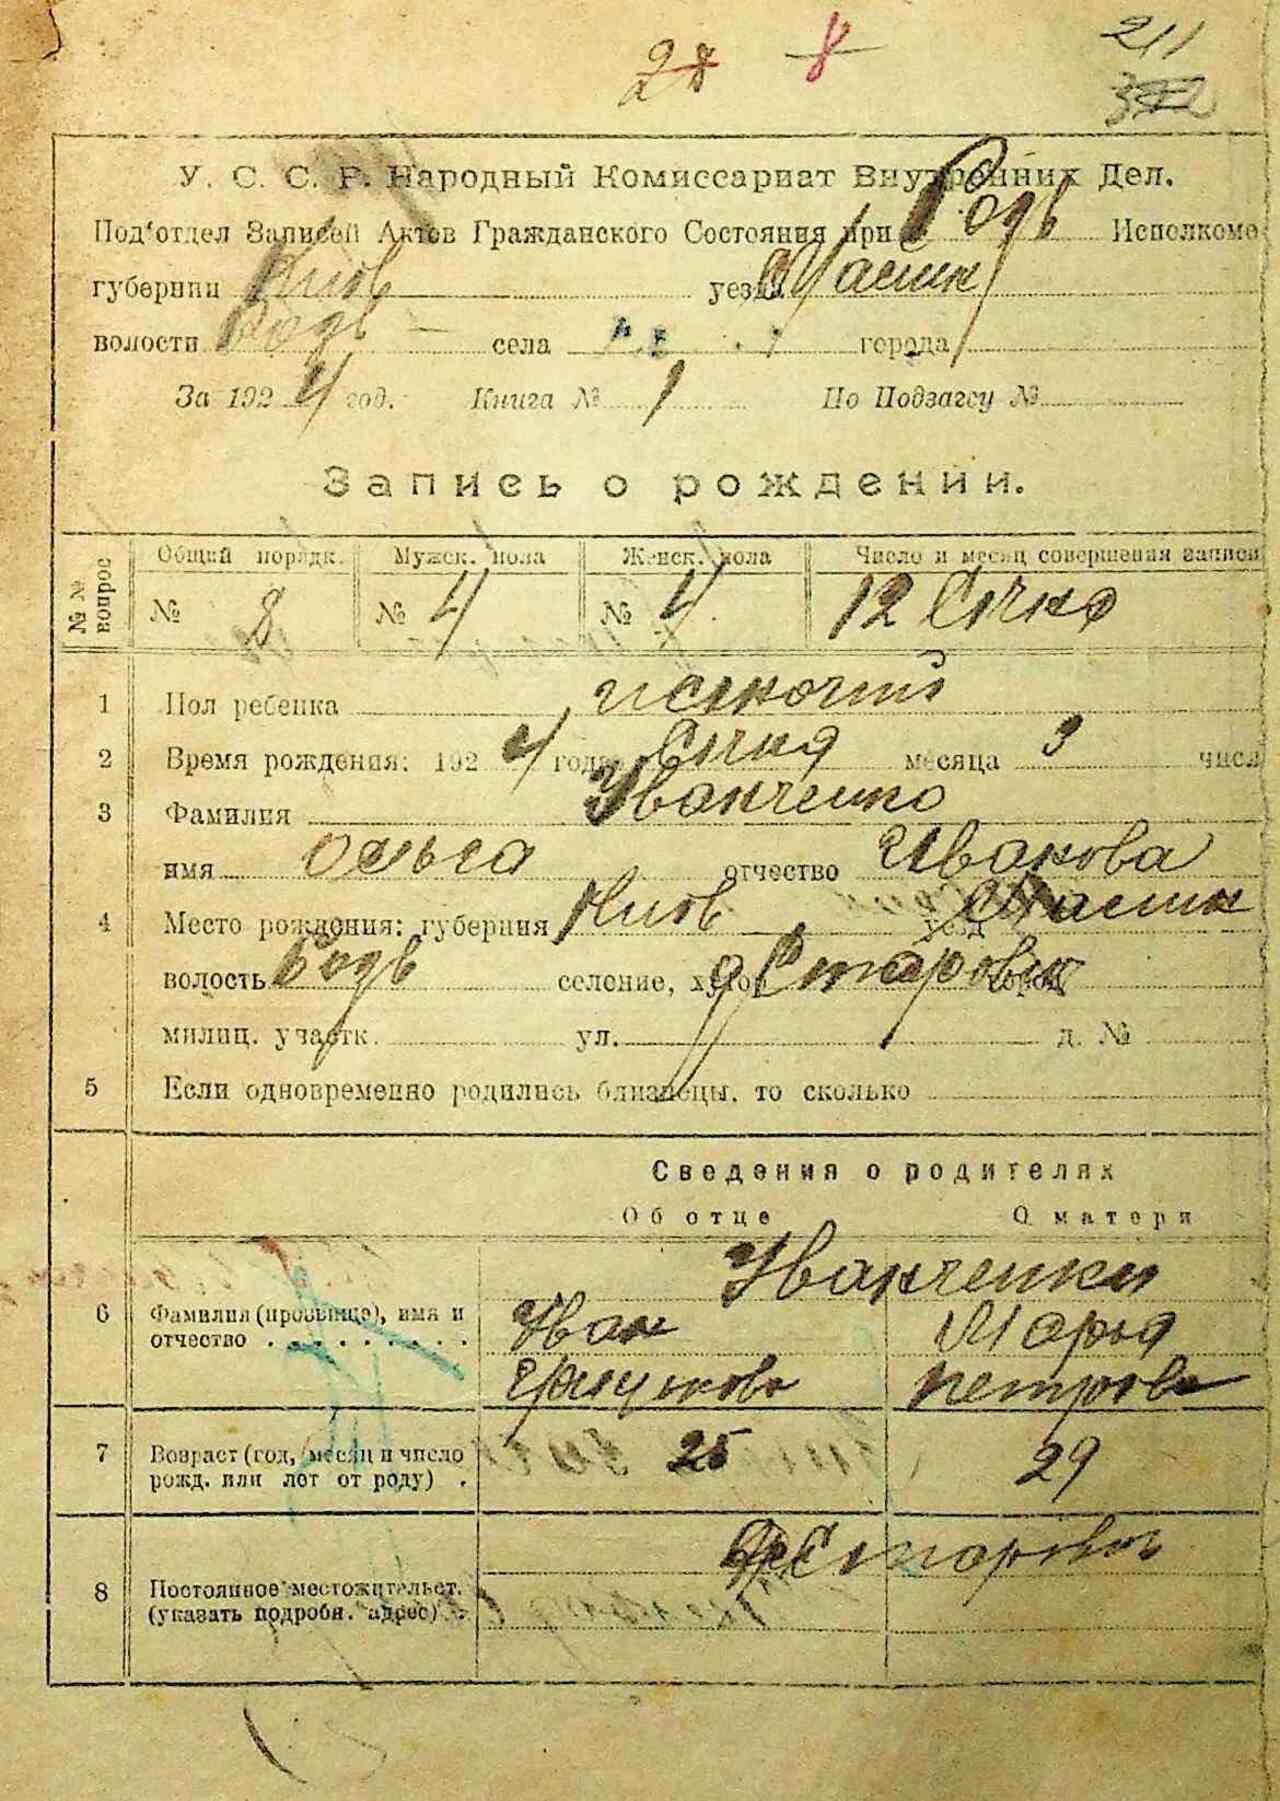 211
У. С. С. Р. Народный Комиссариат Внутренних Дел.
Под'отдел Записей Актов Гражданского Состояния при Бодв Исполкоме
губернии Киев уезда
волости Бодв села города
За 1924 год. Книга № 1 По Подзагсу №
Запись о рождении.
№№ вопрос Общий порядк. Мужск. пола Женск. пола Число и месяц совершения записи
№ 8 № 4 № 4 12 Січня
1 Пол ребенка жіночий
2 Время рождения: 1924 года Січня месяца 3 числ
3 Фамилия Іванченко
имя Ольга отчество Иванова
4 Место рождения: губерния Киев уезд
волость Бодв селение, хутор город
милиц. участк. ул. д. №
5 Если одновременно родились близнецы, то сколько
Сведения о родителях
Об отце О матери
Іванченки
6 Фамилия (прозвище), имя и Іван Марія
отчество . . . . . . . . . Петрова
7 Возраст (год, месяц и число 25 29
рожд. или лет от роду) .
8 Постоянное местожительст.
(указать подробн. адрес) .